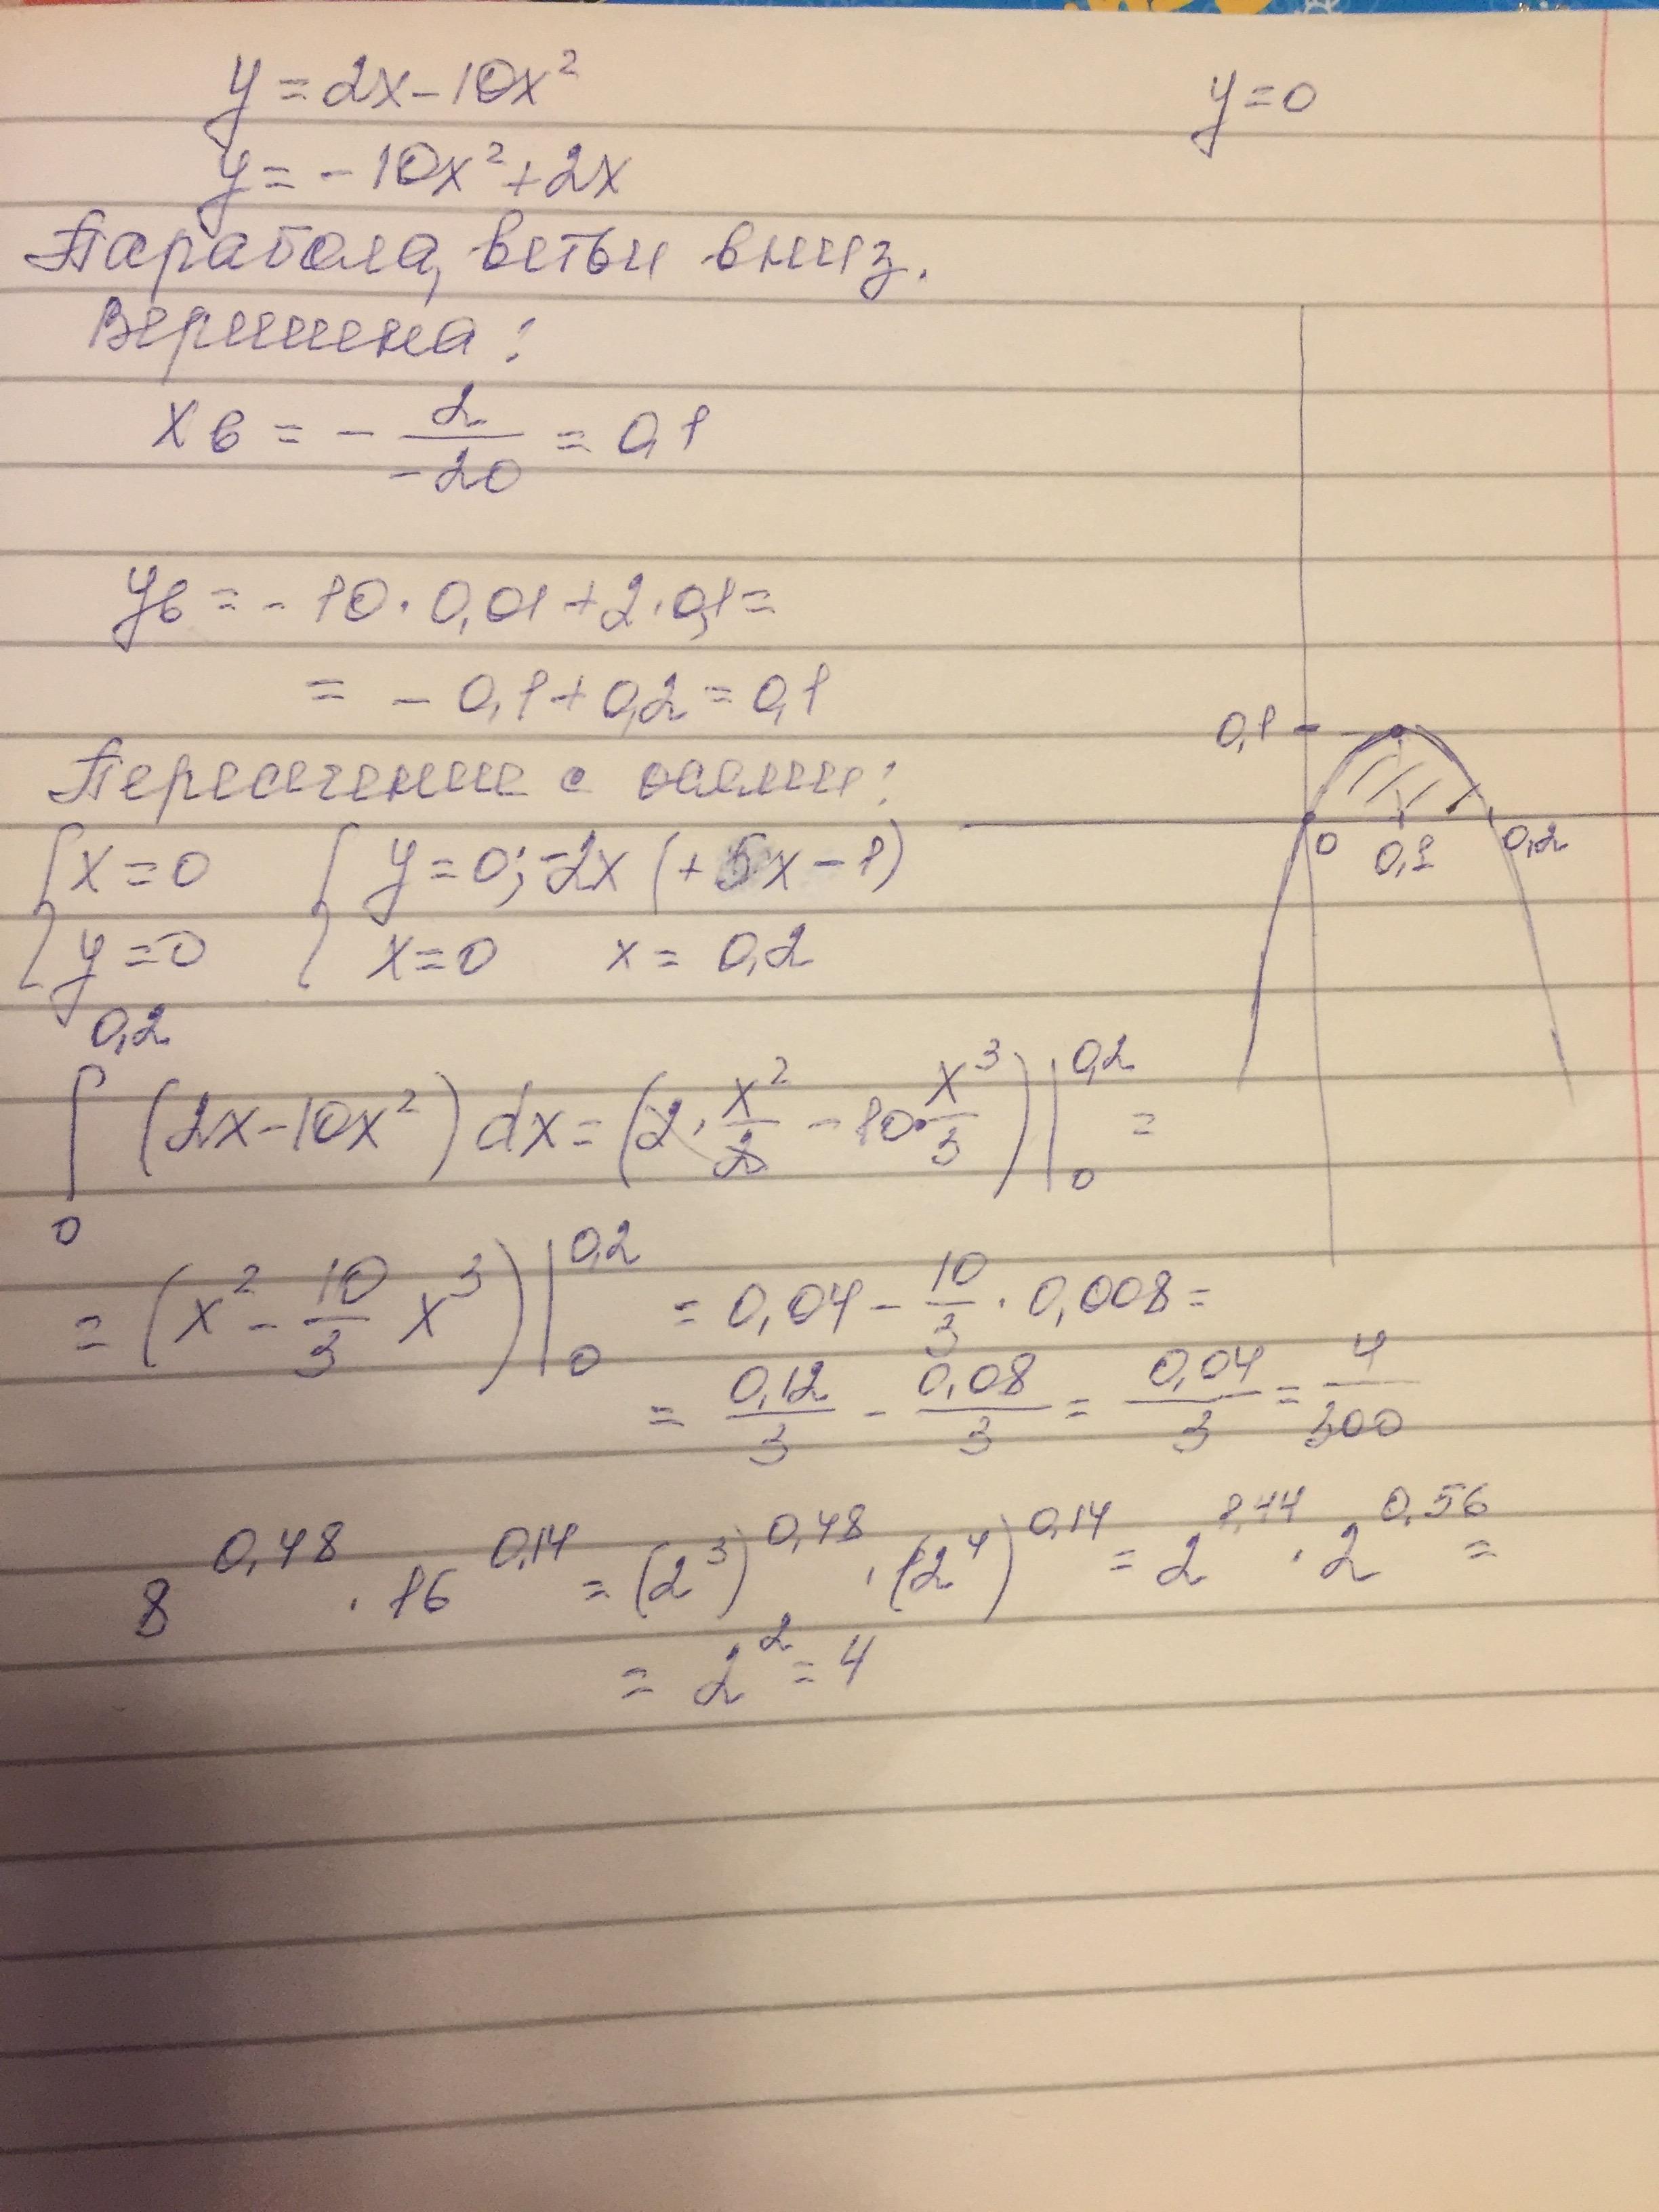 y = 2x - 10x² y = 0
y = - 10x² + 2x
Парабола, ветви вниз.
Вершина:
xв = - 2/-20 = 0,1
yв = - 10 · 0,01 + 2 · 0,1 =
= - 0,1 + 0,2 = 0,1
Пересечение с осями:
{ x = 0 { y = 0; -2x (+ 5x - 1)
y = 0 x = 0 x = 0,2
0,1
0 0,1 0,2
∫₀^0,2 (2x - 10x²) dx = (2 · x²/2 - 10 · x³/3) |₀^0,2 =
= (x² - 10/3 x³) |₀^0,2 = 0,04 - 10/3 · 0,008 =
= 0,12/3 - 0,08/3 = 0,04/3 = 4/300
8^0,48 · 16^0,14 = (2³)^0,48 · (2⁴)^0,14 = 2^1,44 · 2^0,56 =
= 2² = 4